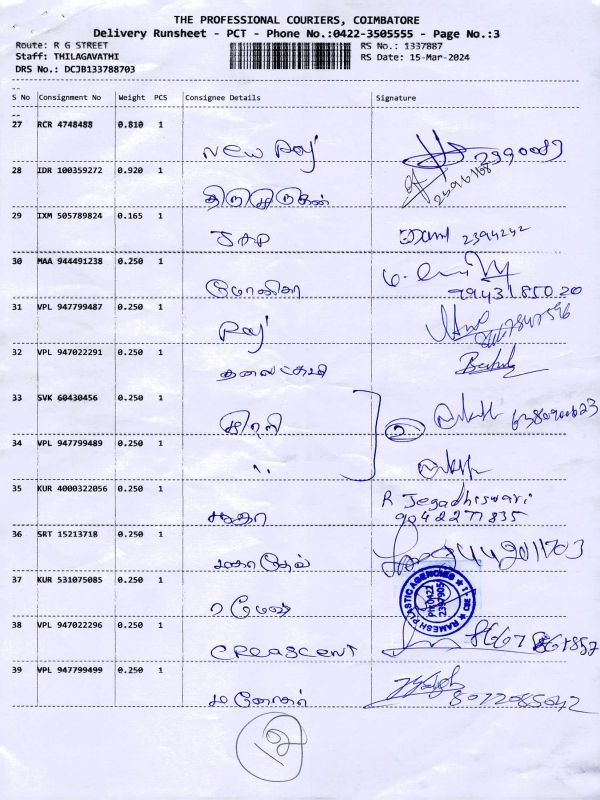 THE PROFESSIONAL COURIERS, COIMBATORE
Delivery Runsheet - PCT - Phone No.:0422-3505555 - Page No.:3
Route: R G STREET RS No.: 1337887
Staff: THILAGAVATHI RS Date: 15-Mar-2024
DRS No.: DCJB133788703
S No Consignment No Weight PCS Consignee Details Signature
27 RCR 4748488 0.810 1
New Raj 2390083
28 IDR 100359272 0.920 1
திருமுருகன்
29 IXM 505789824 0.165 1
JAP 2394242
30 MAA 944491238 0.250 1
மோனிகா 9943185020
31 VPL 947799487 0.250 1
Raj
32 VPL 947022291 0.250 1
33 SVK 60430456 0.250 1
2 6380900623
34 VPL 947799489 0.250 1
"
35 KUR 4000322056 0.250 1 R Jegadhiswari
சுதா 9042277835
36 SRT 15213718 0.250 1
மகாதேவ்
37 KUR 531075085 0.250 1 RAMESH PLASTIC AGENCIES
ரமேஷ் PH:0422 2397905 CBE-1
38 VPL 947022296 0.250 1
CREASCENT
39 VPL 947799499 0.250 1
மனோகர் 8072085042